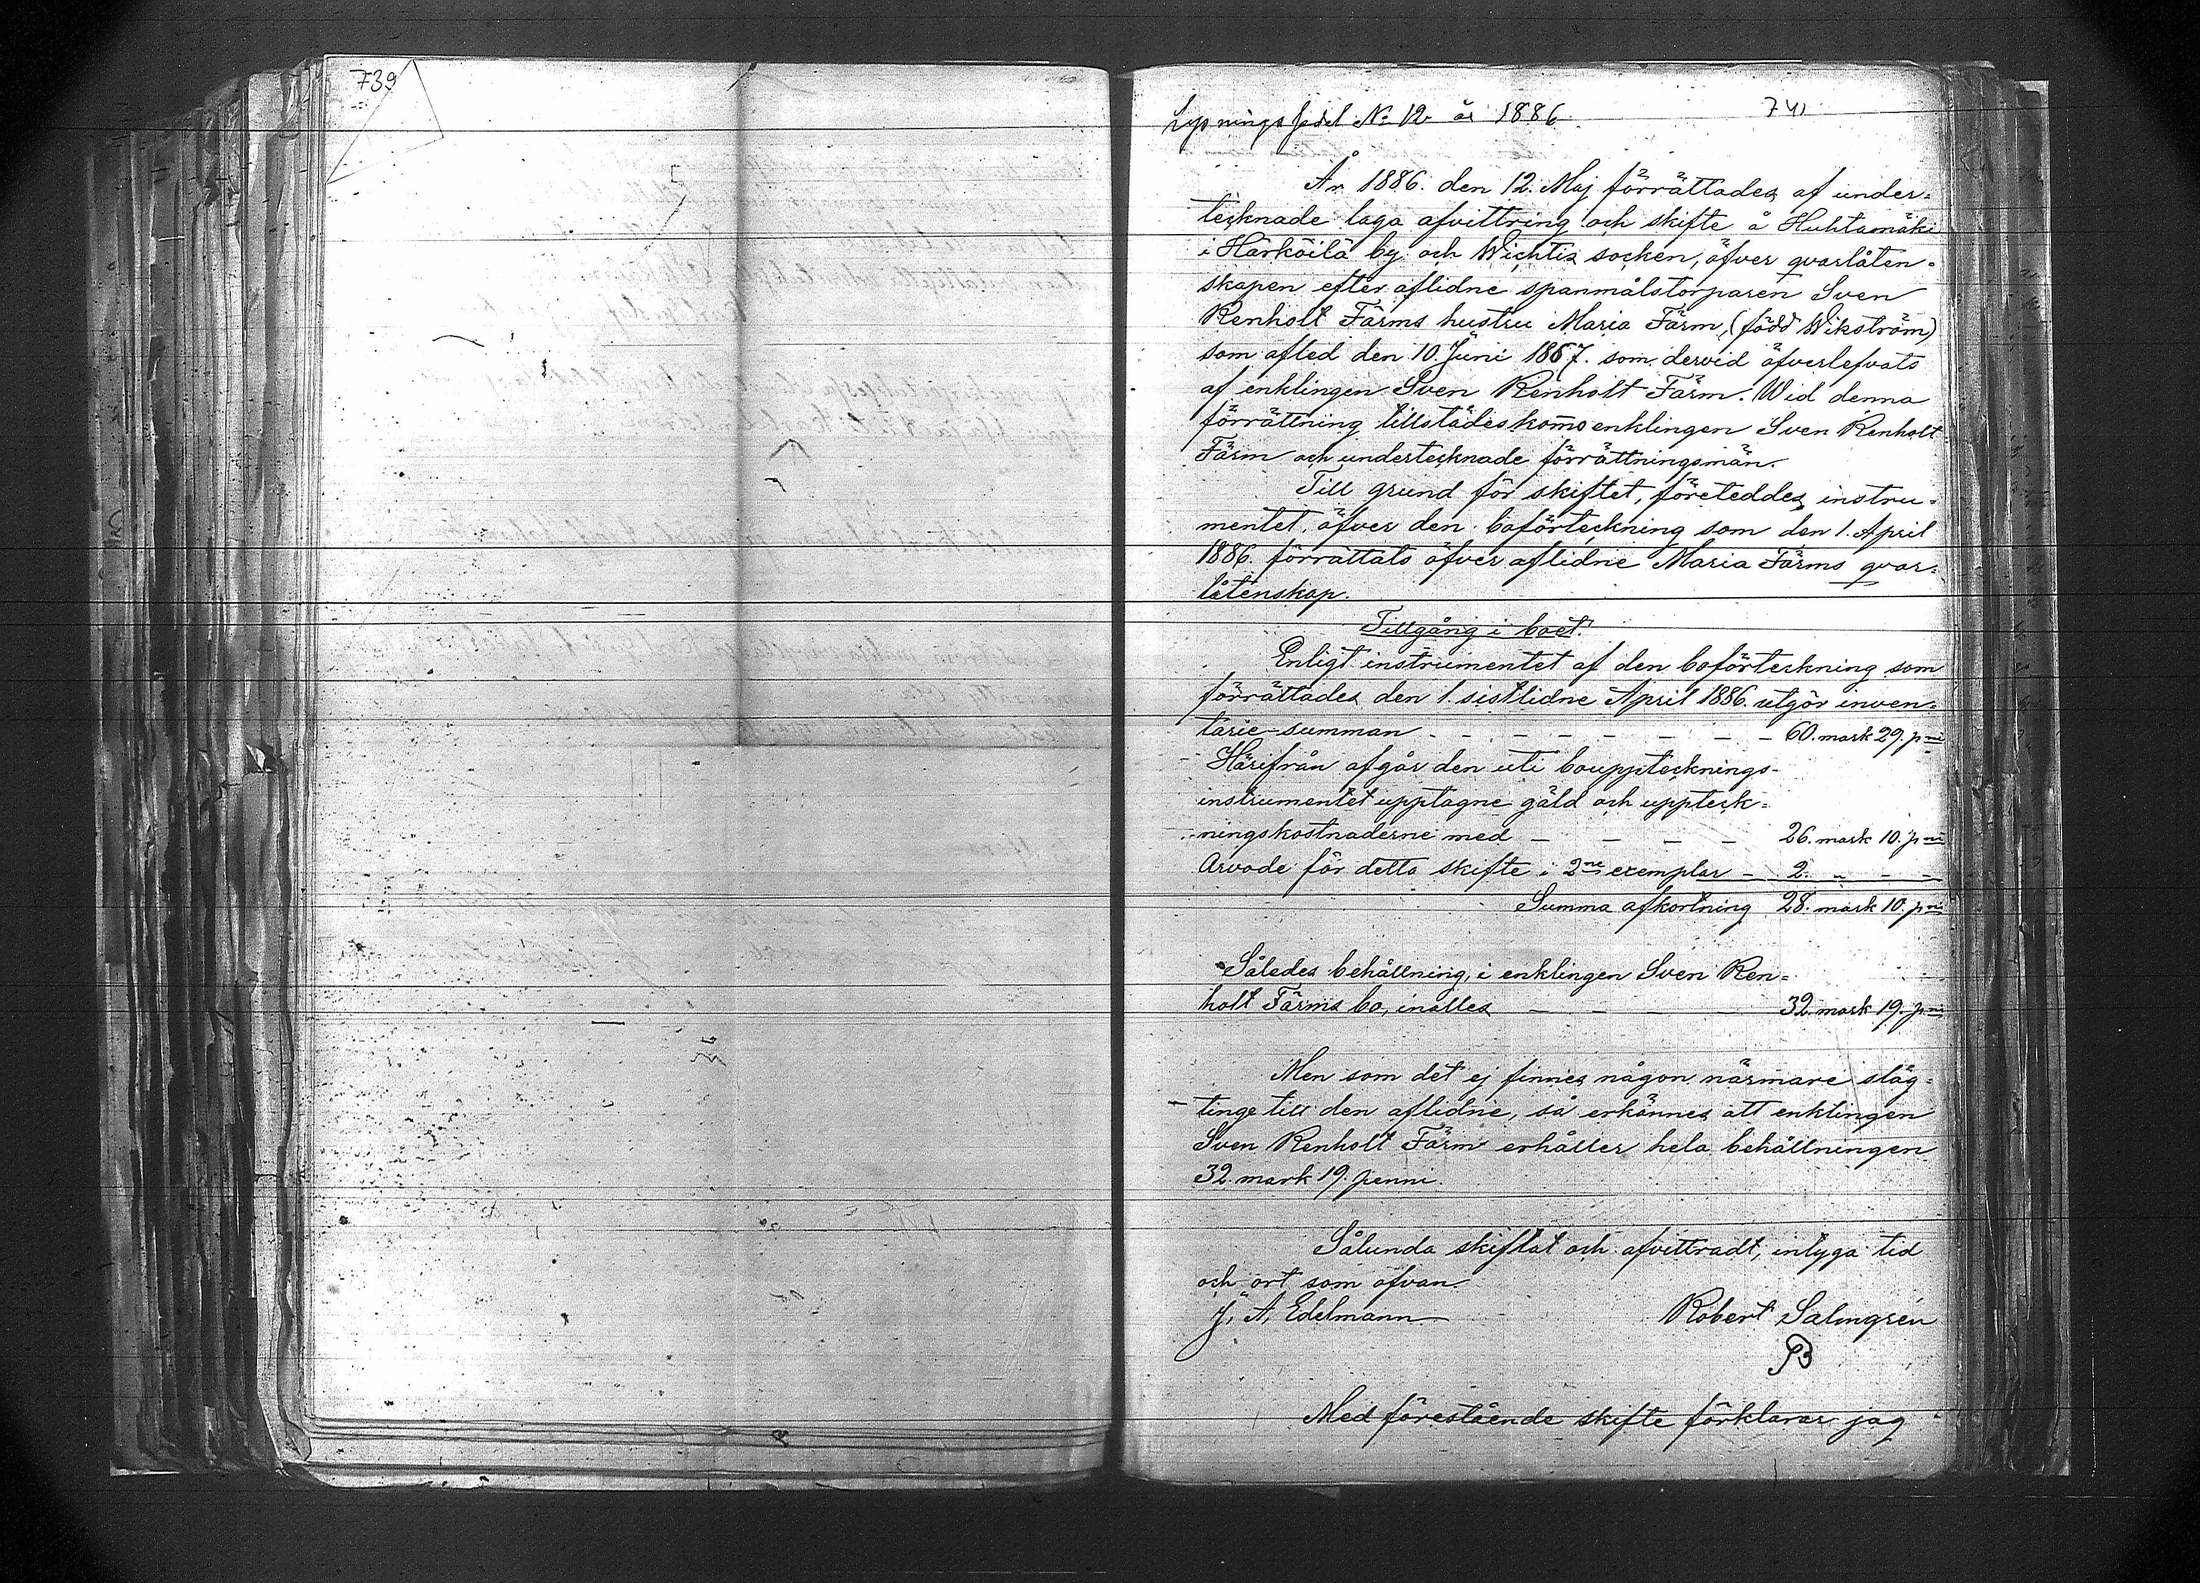 739
Lysningsfedel No 12 år 1886
741
År 1886. den 12. Maj förrättades af under-
tecknade laga afvittring och skifte å Huhtamäki
i Härköilä by och Wichtis socken, öfver qvarlåten-
skapen efter aflidne spanmålstorparen Sven
Renholt Färms hustru Maria Färm, (född Wikström)
som afled den 10. Juni 1867. som dervid öfverlefvats
af enklingen Sven Renholt Färm. Wid denna
förrättning tillstädeskommo enklingen Sven Renholt
Färm och undertecknade förrättningsmän.
Till grund för skiftet, företeddes instru-
mentet, öfver den boförteckning som den 1. April
1886. förrättats öfver aflidne Maria Färms qvar-
låtenskap.
Tillgång i boet.
Enligt instrumentet af den boförteckning som
förrättades den 1. sistlidne April 1886. utgör inven-
tarie-summan - - - - - - - 60. mark 29. pni
Härifrån afgår den uti boupptecknings-
instrumentet upptagne gäld och uppteck-
ningskostnaderne med - - - - 26. mark 10. pni
Arvode för detta skifte i 2ne exemplar - 2. " - -
Summa afkortning 28. mark 10. pni
Således behållning, i enklingen Sven Ren-
holt Färms bo, inalles - - - 32. mark 19. pni
Men som det ej finnes någon närmare släg-
tinge till den aflidne, så erkännes att enklingen
Sven Renholt Färm erhåller hela behållningen
32. mark 19. penni.
Sålunda skiftat och afvittradt, intyga tid
och ort som ofvan.
J. A. Edelmann
Robert Salmgrén
Med förestående skifte förklarar jag